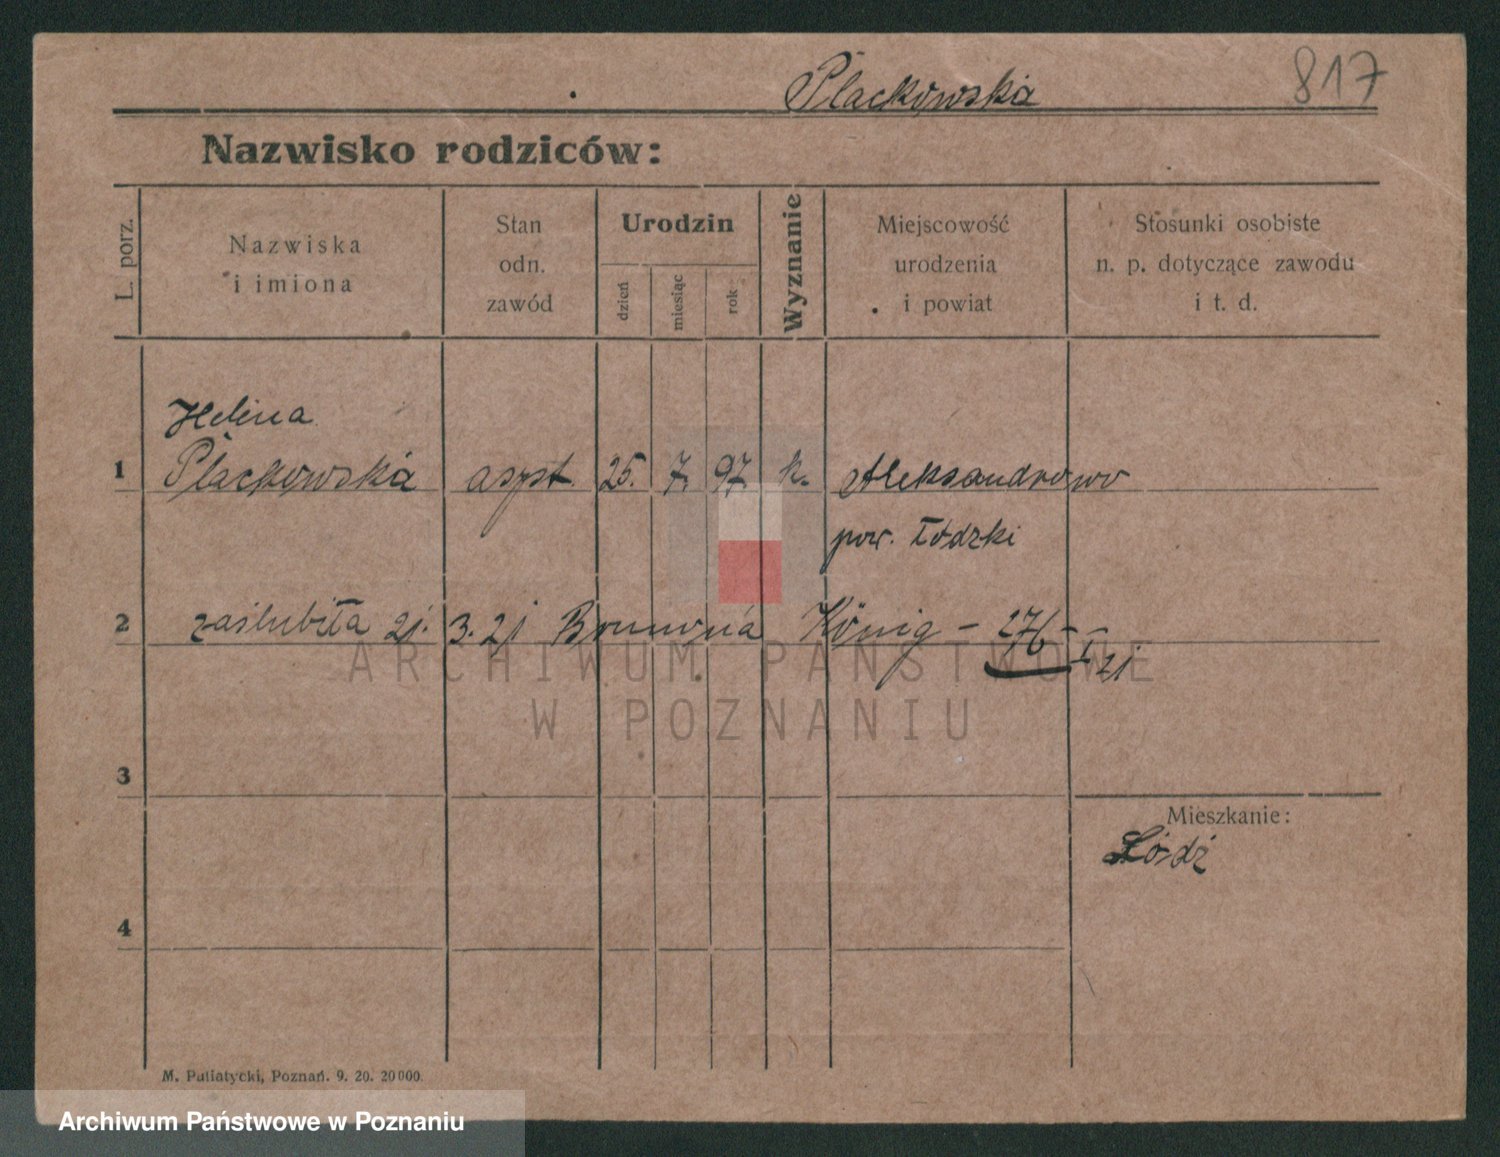 Plackowska 817
Nazwisko rodziców:
L. porz.
Nazwiska
i imiona
Stan
odn.
zawód
Urodzin
dzień
miesiąc
rok
Wyznanie
Miejscowość
urodzenia
i powiat
Stosunki osobiste
n. p. dotyczące zawodu
i t. d.
Helena
1 Plackowska aspt. 25. 7. 97. k. Aleksandrowo
pow. Łódzki
2 zaślubiła 21. 3. 21 König – 276 – I 21
ARCHIWUM PAŃSTWOWE
W POZNANIU
3
Mieszkanie:
Łódź
4
M. Putiatycki, Poznań. 9. 20. 20000.
Archiwum Państwowe w Poznaniu